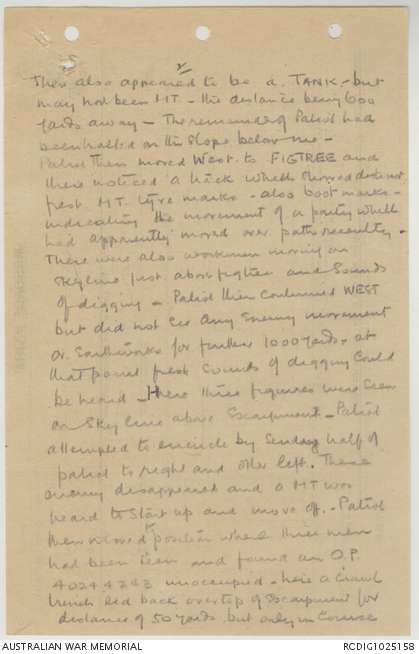 2
There also appeared to be a TANK - but
may have been MT - the distance being 600
yards away - The remainder of Patrol had
been halted on the slope below me -
Patrol then moved West to FIGTREE and
there noticed a track which showed
fresh MT tyre marks - also boot marks -
indicating the movement of a party which
had apparently moved over path recently -
There were also workmen moving on
skyline just above figtree and sounds
of digging - Patrol then continued WEST
but did not see any enemy movement
or Earthworks for further 1000 yards - at
that point fresh sounds of digging could
be heard - Here three figures were seen
on Sky line above Escarpment - Patrol
attempted to encircle by sending half of
patrol to right and other left. These
enemy disappeared and a MT was
heard to start up and move off. - Patrol
then moved to position where three men
had been seen and found an O.P.
40244243 unoccupied - here a crawl
trench led back over top of Escarpment for
distance of 50 yards, but only in course
AUSTRALIAN WAR MEMORIAL
RCDIG1025158